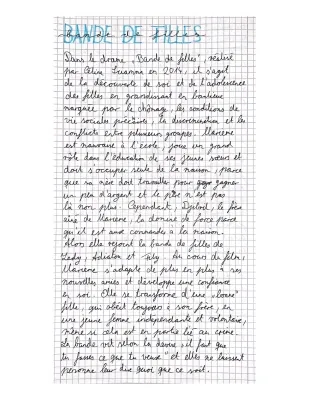 BANDE DE FILLES
Bande de filles
Dans le drame, "Bande de filles", réalisé
par Céline Sciamma en 2014, il s'agit
de la découverte de soi et de l'adolescence
des filles en grandissant en banlieue
marquée par le chômage, les conditions de
vie sociales précaires, la discrimination et les
conflits entre plusieurs groupes. Marieme
est mauvaise à l'école, joue un grand
rôle dans l'éducation de ses jeunes sœurs et
doit s'occuper seule de la maison, parce
que sa mère doit travailler pour gagner
un peu d'argent et le père n'est pas
là non plus. Cependant, Djibril, le frère
ainé de Marieme, la domine de force parce
qu'il est aux commandes à la maison.
Alors elle rejoint la bande de filles de
Lady, Adiatou et Fily. Au cours du film,
Marieme s'adapte de plus en plus à ses
nouvelles amies et développe une confiance
en soi. Elle se transforme d'une "bonne"
fille, qui obéit toujours à son frère, en
une jeune femme indépendante et volontaire,
même si cela est en partie lié au crime.
La bande vit selon la devise "il faut que
tu fasses ce que tu veux" et elles ne laissent
personne leur dire quoi que ce soit.